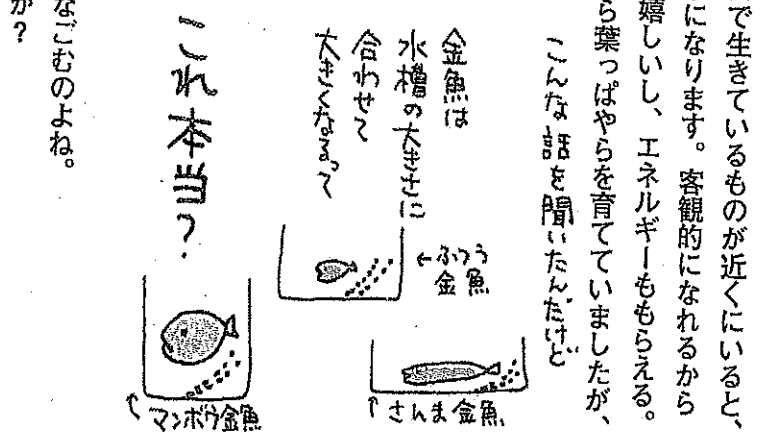 で生きているものが近くにいると、
になります。客観的になれるから
嬉しいし、エネルギーももらえる。
ら葉っぱやらを育てていましたが、
こんな話を聞いたんだけど
金魚は
水槽の大きさに
合わせて
大きくなるって
←ふつう
金魚
↑さんま金魚
これ本当?
マンボウ金魚
なごむのよね。
か?